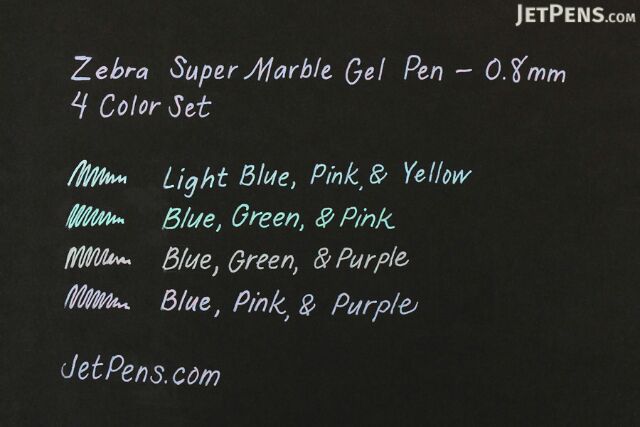 JETPENS.COM
Zebra Super Marble Gel Pen - 0.8mm
4 Color Set
Light Blue, Pink, & Yellow
Blue, Green, & Pink
Blue, Green, & Purple
Blue, Pink, & Purple
JetPens.com